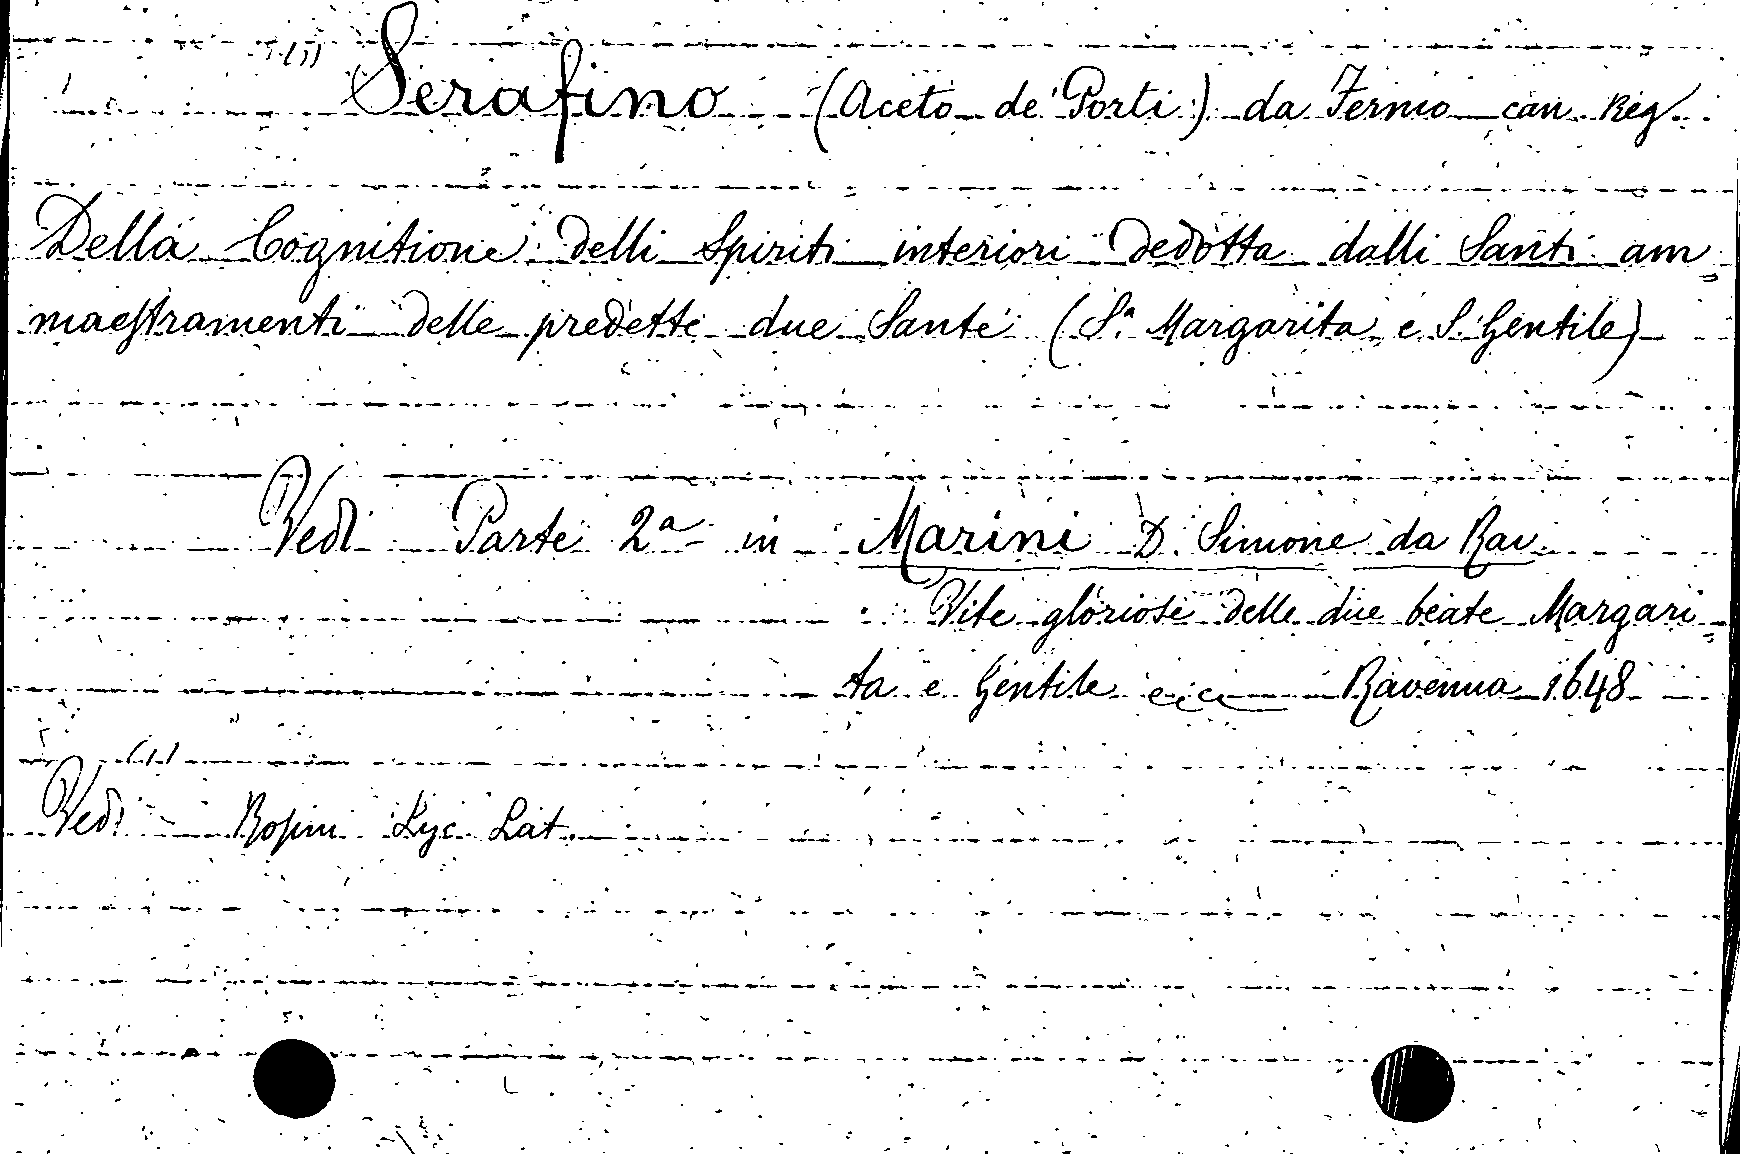 (1) Serafino (Aceto de' Porti) da Fermo can. Reg.
Della Cognitione delli Spiriti interiori dedotta dalli Santi am=
maestramenti delle predette due Sante (S.ª Margarita e S. Gentile)
Vedi Parte 2ª in Marini D. Simone da Rav.
Vite gloriose delle due beate Margari=
ta e Gentile ecc Ravenna 1648
(1)
Vedi Rosini Lyc. Lat.